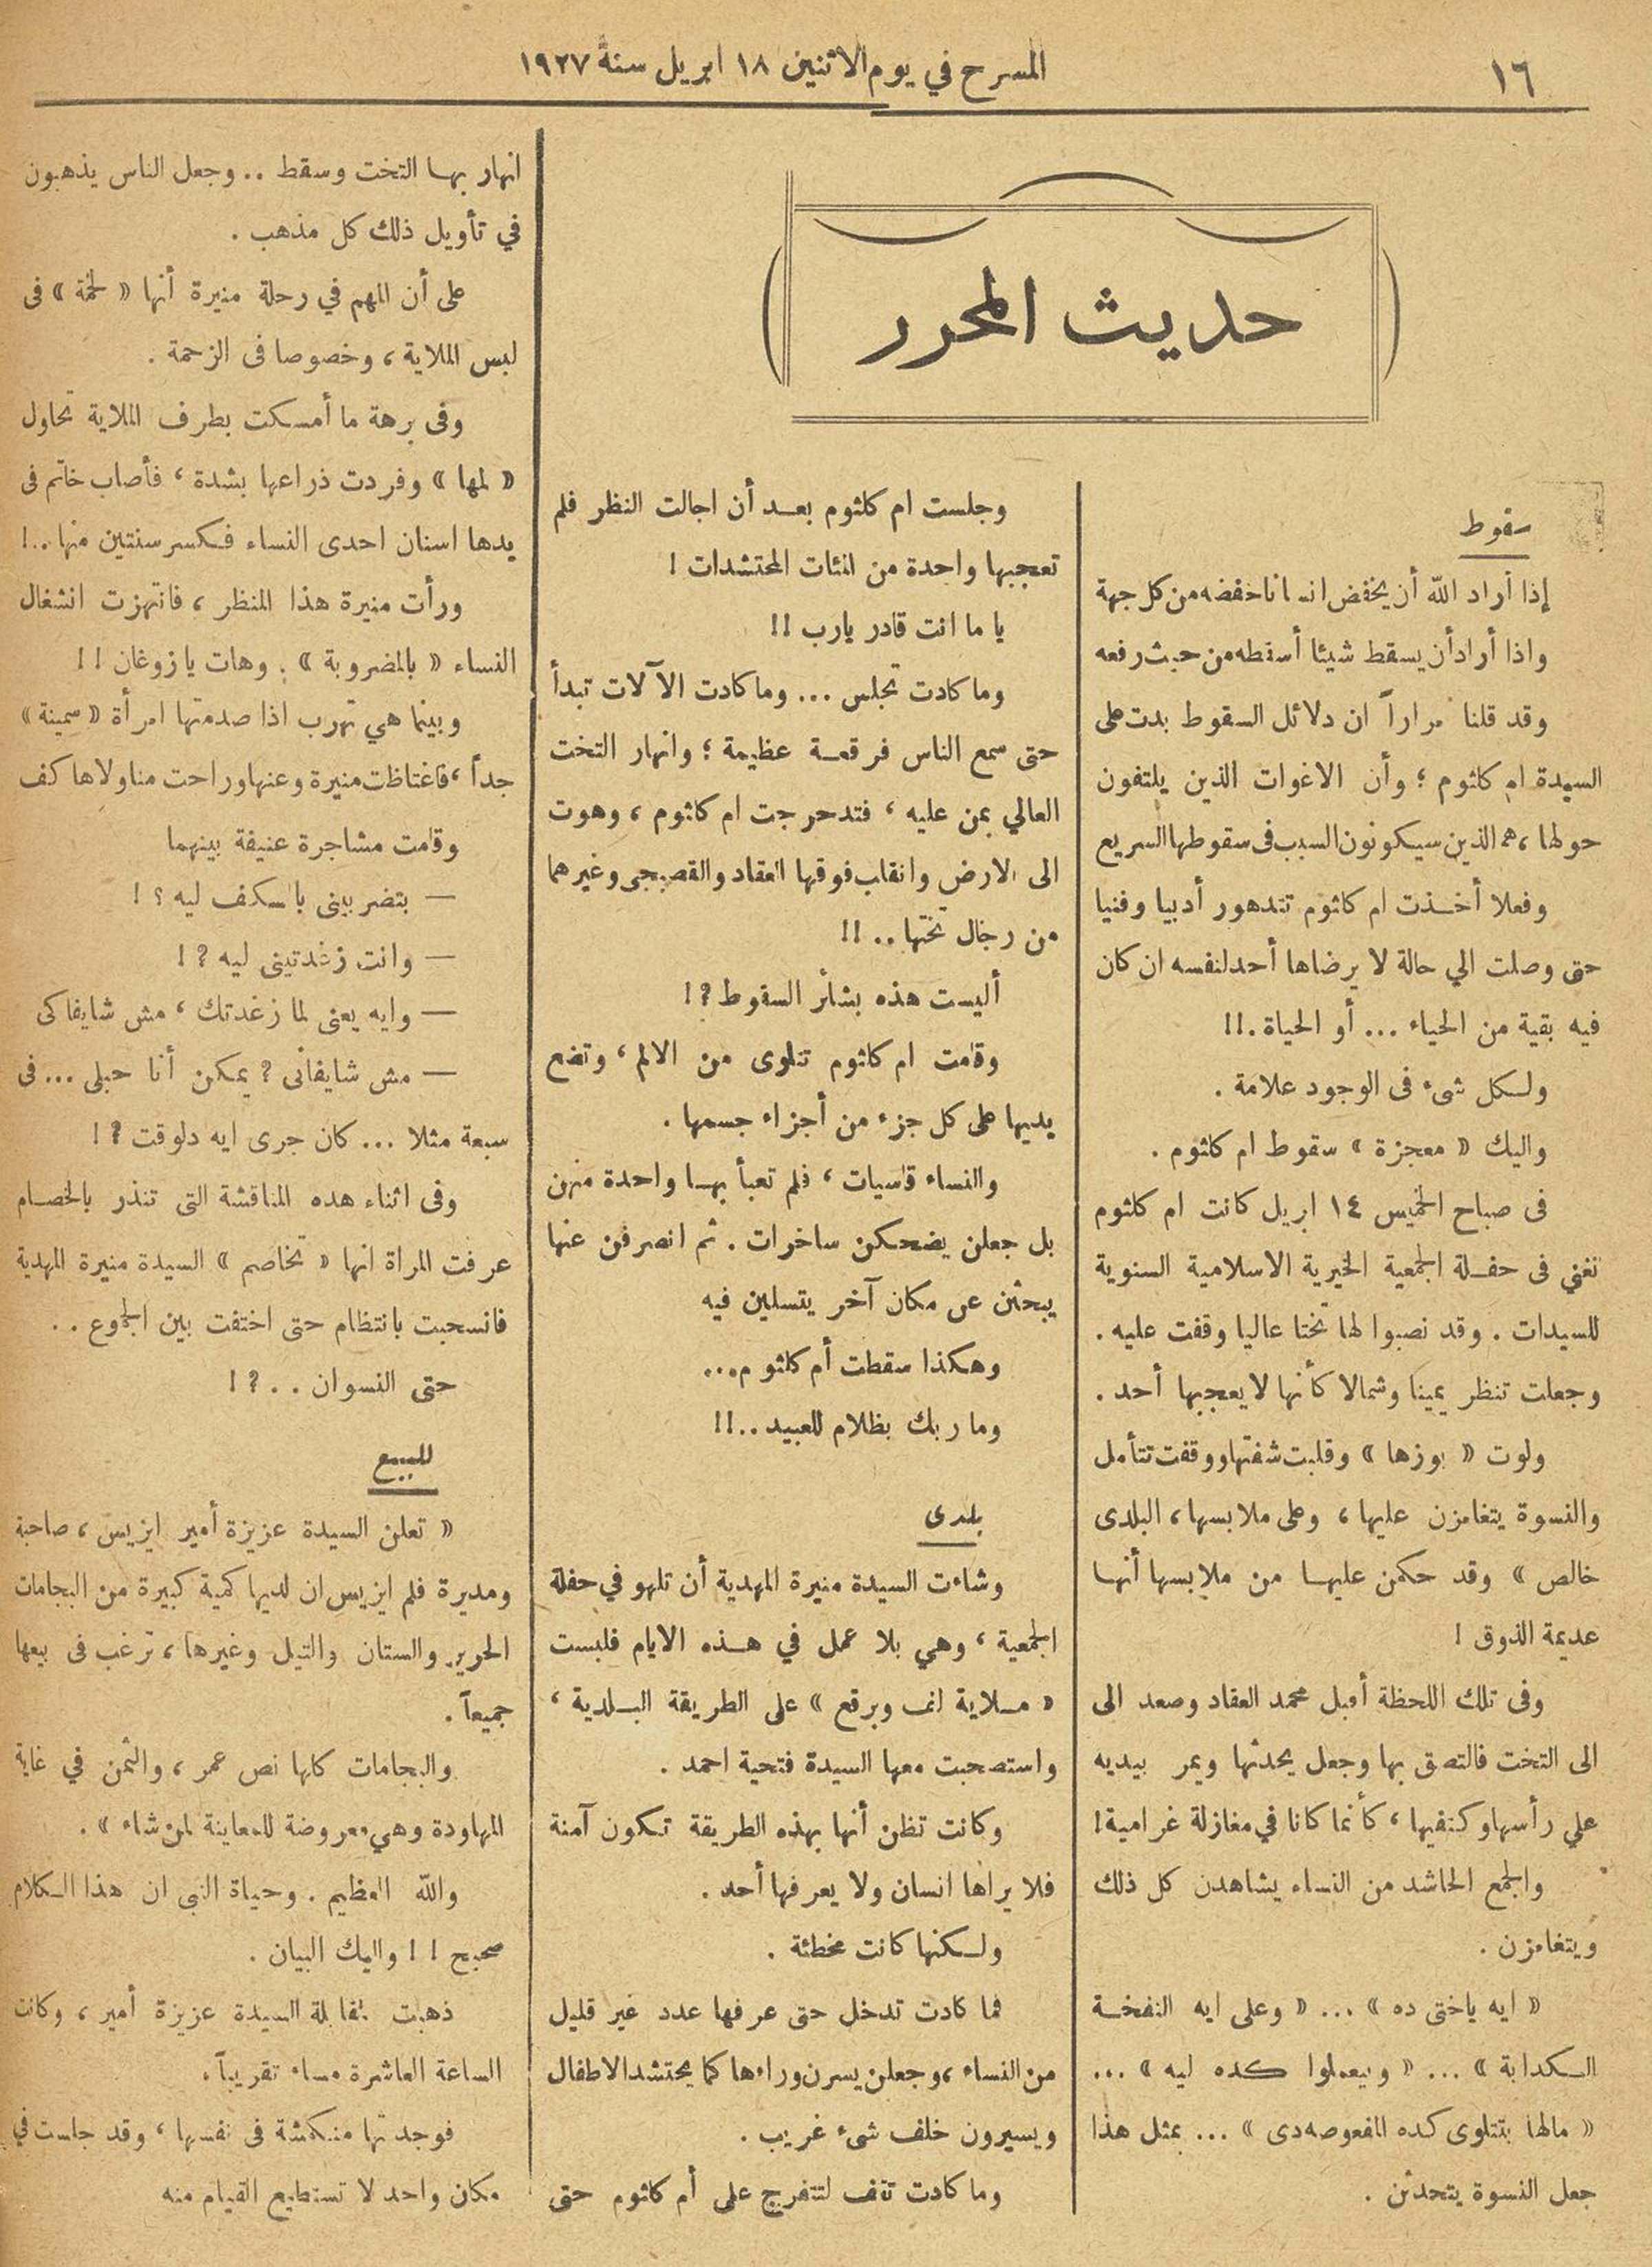 ١٦
المسرح في يوم الاثنين ١٨ ابريل سنة ١٩٢٧
حديث المحرر
سقوط
إذا أراد الله أن يخفض انسانا خفضه من كل جهة
واذا أراد أن يسقط شيئا أسقطه من حيث رفعه
وقد قلنا مراراً ان دلائل السقوط بدت على
السيدة ام كلثوم ؛ وأن الاغوات الذين يلتفون
حولها ، هم الذين سيكونون السبب فى سقوطها السريع
وفعلا أخذت ام كلثوم تتدهور أدبيا وفنيا
حتى وصلت الي حالة لا يرضاها أحد لنفسه ان كان
فيه بقية من الحياء ... أو الحياة .!!
ولكل شىء فى الوجود علامة .
واليك « معجزة » سقوط ام كلثوم .
فى صباح الخميس ١٤ ابريل كانت ام كلثوم
تغني فى حفلة الجمعية الخيرية الاسلامية السنوية
للسيدات . وقد نصبوا لها تختا عاليا وقفت عليه .
وجعلت تنظر يمينا وشمالا كأنها لا يعجبها أحد .
ولوت « بوزها » وقلبت شفتها ووقفت تتأمل
والنسوة يتغامزن عليها ، وعلى ملابسها ، البلدى
خالص » وقد حكمن عليها من ملابسها أنها
عديمة الذوق !
وفى تلك اللحظة أقبل محمد العقاد وصعد الى
الى التخت فالتصق بها وجعل يحدثها ويمر بيديه
علي رأسها وكتفيها ، كأنما كانا في مغازلة غرامية !
والجمع الحاشد من النساء يشاهدن كل ذلك
ويتغامزن .
« ايه ياختى ده » ... « وعلى ايه النفخة
الكدابة » ... « وبيعملوا كده ليه » ...
« مالها بتتلوى كده المفعوصه دى » ... بمثل هذا
جعل النسوة يتحدثن .
وجلست ام كلثوم بعد أن اجالت النظر فلم
تعجبها واحدة من المئات المحتشدات !
يا ما انت قادر يارب !!
وما كادت تجلس ... وما كادت الآلات تبدأ
حتى سمع الناس فرقعة عظيمة ؛ وانهار التخت
العالي بمن عليه ، فتدحرجت ام كلثوم ، وهوت
الى الارض وانقلب فوقها العقاد والقصبجى وغيرهما
من رجال تختها .. !!
أليست هذه بشائر السقوط ؟ !
وقامت ام كلثوم تتلوى من الالم ، وتضع
يديها على كل جزء من أجزاء جسمها .
والنساء قاسيات ، فلم تعبأ بها واحدة منهن
بل جعلن يضحكن ساخرات . ثم انصرفن عنها
يبحثن عن مكان آخر يتسلين فيه
وهكذا سقطت أم كلثوم ...
وما ربك بظلام للعبيد ..!!
بلدى
وشاءت السيدة منيرة المهدية أن تلهو في حفلة
الجمعية ، وهي بلا عمل في هذه الايام فلبست
« ملاية لف وبرقع » على الطريقة البلدية ،
واستصحبت معها السيدة فتحية احمد .
وكانت تظن أنها بهذه الطريقة تكون آمنة
فلا يراها انسان ولا يعرفها أحد .
ولكنها كانت مخطئة .
فما كادت تدخل حتى عرفها عدد غير قليل
من النساء ، وجعلن يسرن وراءها كما يحتشد الاطفال
ويسيرون خلف شىء غريب .
وما كادت تقف لتتفرج على أم كلثوم حتى
انهار بها التخت وسقط .. وجعل الناس يذهبون
في تأويل ذلك كل مذهب .
على أن المهم في رحلة منيرة أنها « لخمة » فى
لبس الملاية ، وخصوصا فى الزحمة .
وفى برهة ما أمسكت بطرف الملاية تحاول
« لمها » وفردت ذراعها بشدة ، فأصاب خاتم فى
يدها اسنان احدى النساء فكسر سنتين منها ..!
ورأت منيرة هذا المنظر ، فانتهزت انشغال
النساء « بالمضروبة » . وهات يا زوغان !!
وبينما هي تهرب اذا صدمتها امرأة « سمينة »
جداً ، فاغتاظت منيرة وعنها وراحت مناولاها كف
وقامت مشاجرة عنيفة بينهما
— بتضربينى بالكف ليه ؟ !
— وانت زغدتينى ليه ؟ !
— وايه يعنى لما زغدتك ، مش شايفاكى
— مش شايفانى ؟ يمكن أنا حبلى ... فى
سبعة مثلا ... كان جرى ايه دلوقت ؟ !
وفى اثناء هذه المناقشة التى تنذر بالخصام
عرفت المراة انها « تخاصم » السيدة منيرة المهدية
فانسحبت بانتظام حتى اختفت بين الجموع ..
حتى النسوان .. ؟ !
للبيع
« تعلن السيدة عزيزة أمير ايزيس ، صاحبة
ومديرة فلم ايزيس ان لديها كمية كبيرة من البجامات
الحرير والستان والتيل وغيرها ، ترغب فى بيعها
جميعاً .
والبجامات كلها نص عمر ، والثمن في غاية
المهاودة وهي معروضة للمعاينة لمن شاء » .
والله العظيم . وحياة النبى ان هذا الكلام
صحيح ! ! واليك البيان .
ذهبت لمقابلة السيدة عزيزة أمير ، وكانت
الساعة العاشرة مساء تقريباً .
فوجدتها منكمشة فى نفسها ، وقد جلست في
مكان واحد لا تستطيع القيام منه